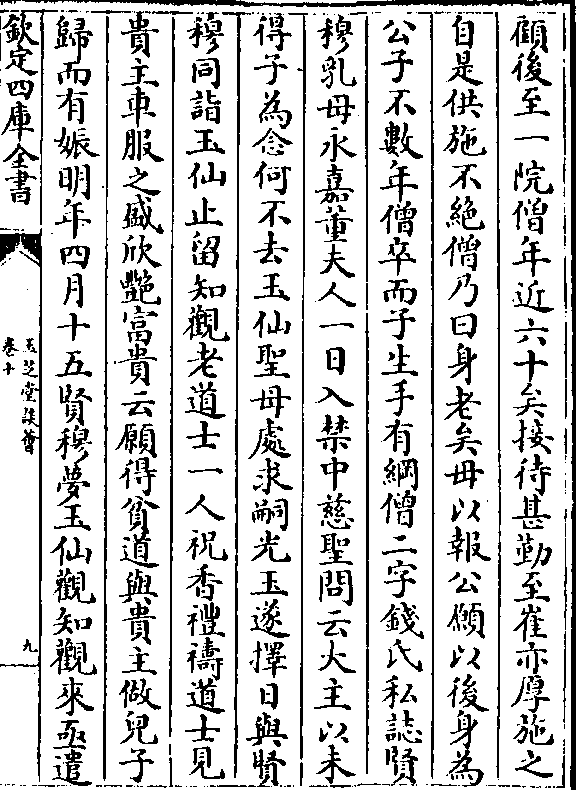 顧後至一院僧年近六十矣接待甚勤至崔亦厚施之
自是供施不絶僧乃曰身老矣毋以報公願以後身為
公子不數年僧卒而子生手有綱僧二字錢氏私誌賢
穆乳母永嘉董夫人一日入禁中慈聖問云大主以未
得子為念何不去玉仙聖母處求嗣光玉遂擇日與賢
穆同詣玉仙止留知觀老道士一人祝香禮禱道士見
貴主車服之盛欣艷富貴云願得貧道與貴主做兒子
歸而有娠明年四月十五賢穆夢玉仙觀知觀來亟遣
欽定四庫全書
玉芝堂談薈
卷十
九